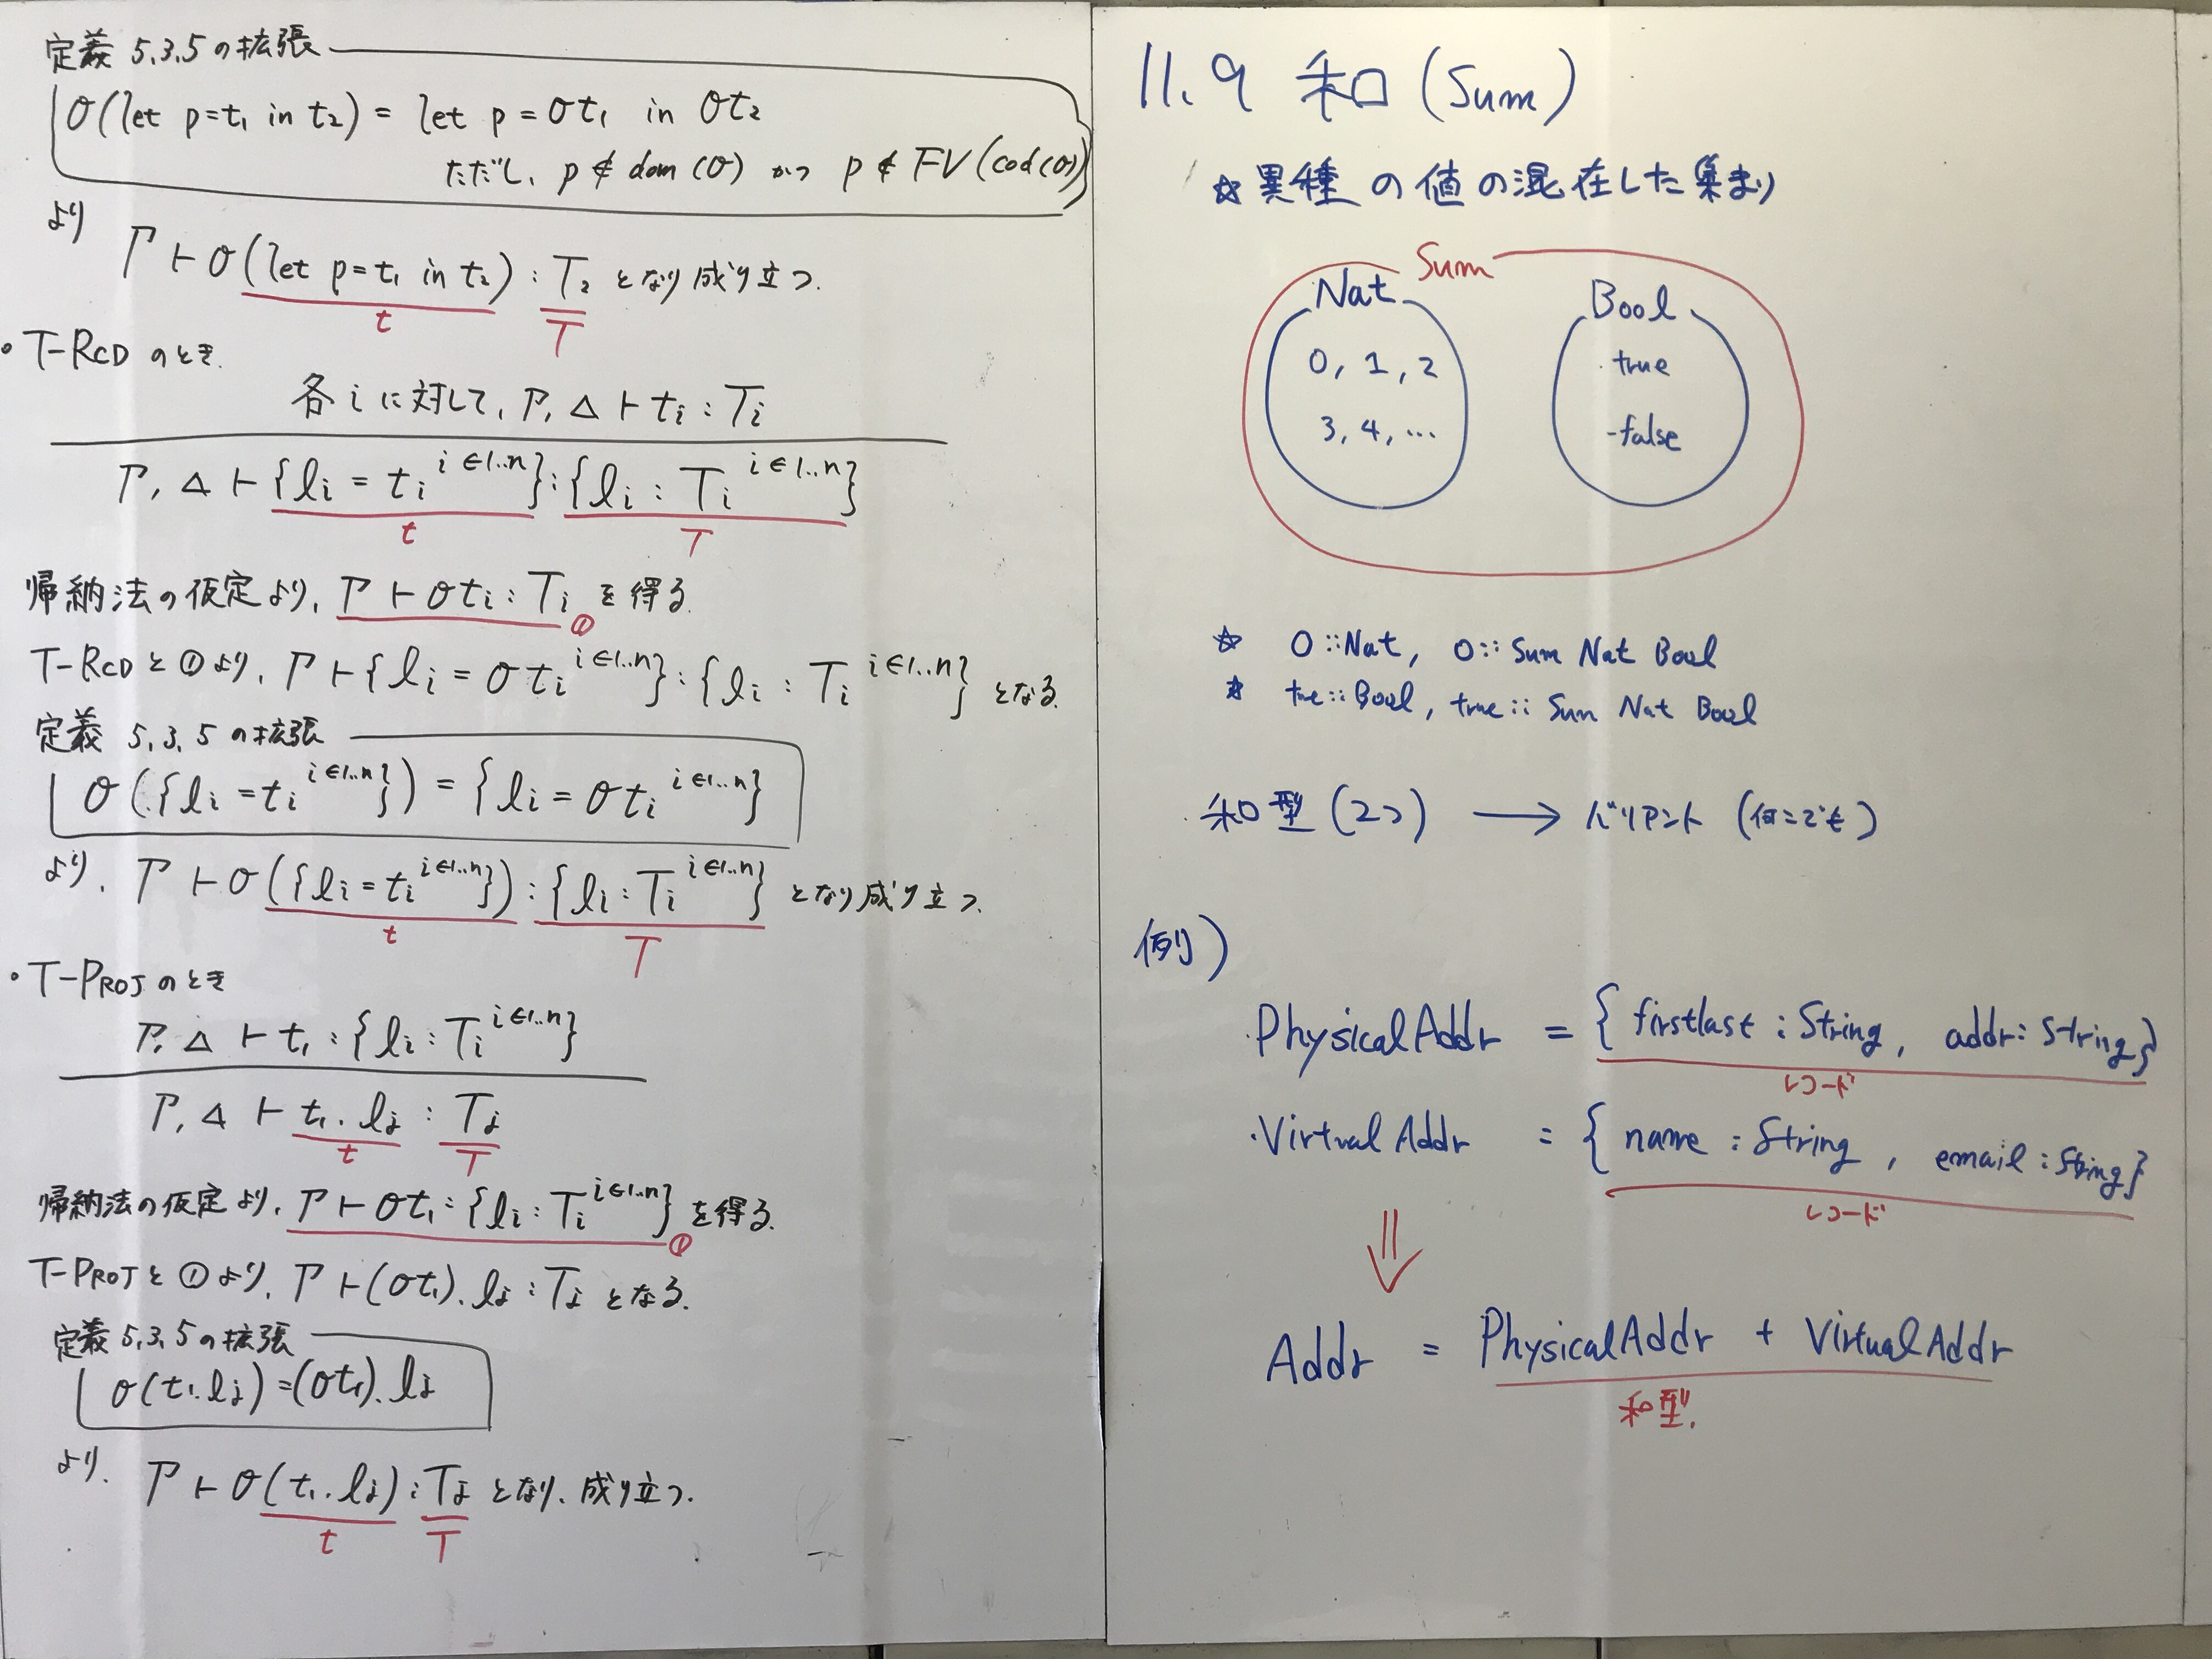 定義 5.3.5 の拡張
σ(let p=t₁ in t₂) = let p = σt₁ in σt₂
ただし、p ∉ dom(σ) かつ p ∉ FV(cod(σ))
より
Γ ⊢ σ(let p=t₁ in t₂) : T₂ となり成り立つ.
t T
• T-RCD のとき.
各 i に対して, Γ, Δ ⊢ tᵢ : Tᵢ
Γ, Δ ⊢ {lᵢ = tᵢ^{i∈1..n}} : {lᵢ : Tᵢ^{i∈1..n}}
t T
帰納法の仮定より, Γ ⊢ σtᵢ : Tᵢ ① を得る.
T-RCD と ① より, Γ ⊢ {lᵢ = σtᵢ^{i∈1..n}} : {lᵢ : Tᵢ^{i∈1..n}} となる.
定義 5.3.5 の拡張
σ({lᵢ = tᵢ^{i∈1..n}}) = {lᵢ = σtᵢ^{i∈1..n}}
より, Γ ⊢ σ({lᵢ = tᵢ^{i∈1..n}}) : {lᵢ : Tᵢ^{i∈1..n}} となり成り立つ.
t T
• T-PROJ のとき
Γ, Δ ⊢ t₁ : {lᵢ : Tᵢ^{i∈1..n}}
Γ, Δ ⊢ t₁.lⱼ : Tⱼ
t T
帰納法の仮定より, Γ ⊢ σt₁ : {lᵢ : Tᵢ^{i∈1..n}} ① を得る.
T-PROJ と ① より, Γ ⊢ (σt₁).lⱼ : Tⱼ となる.
定義 5.3.5 の拡張
σ(t₁.lⱼ) = (σt₁).lⱼ
より, Γ ⊢ σ(t₁.lⱼ) : Tⱼ となり、成り立つ.
t T
11.9 和 (Sum)
☆ 異種の値の混在した集まり
Sum
Nat Bool
0, 1, 2 true
3, 4, … false
☆ 0::Nat, 0::Sum Nat Bool
☆ true::Bool, true::Sum Nat Bool
和型 (2つ) → バリアント (何こでも)
例)
・PhysicalAddr = { firstlast : String, addr : String}
レコード
・VirtualAddr = { name : String, email : String}
レコード
⇓
Addr = PhysicalAddr + VirtualAddr
和型.